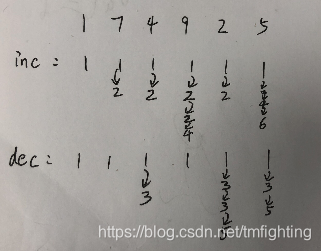 1 7 4 9 2 5
inc = 1 1 1 1 1 1
↓ ↓ ↓ ↓
2 2 2 2
4 6
dec = 1 1 1 1 1 1
↓ ↓ ↓
3 3 3
5
https://blog.csdn.net/tmfighting